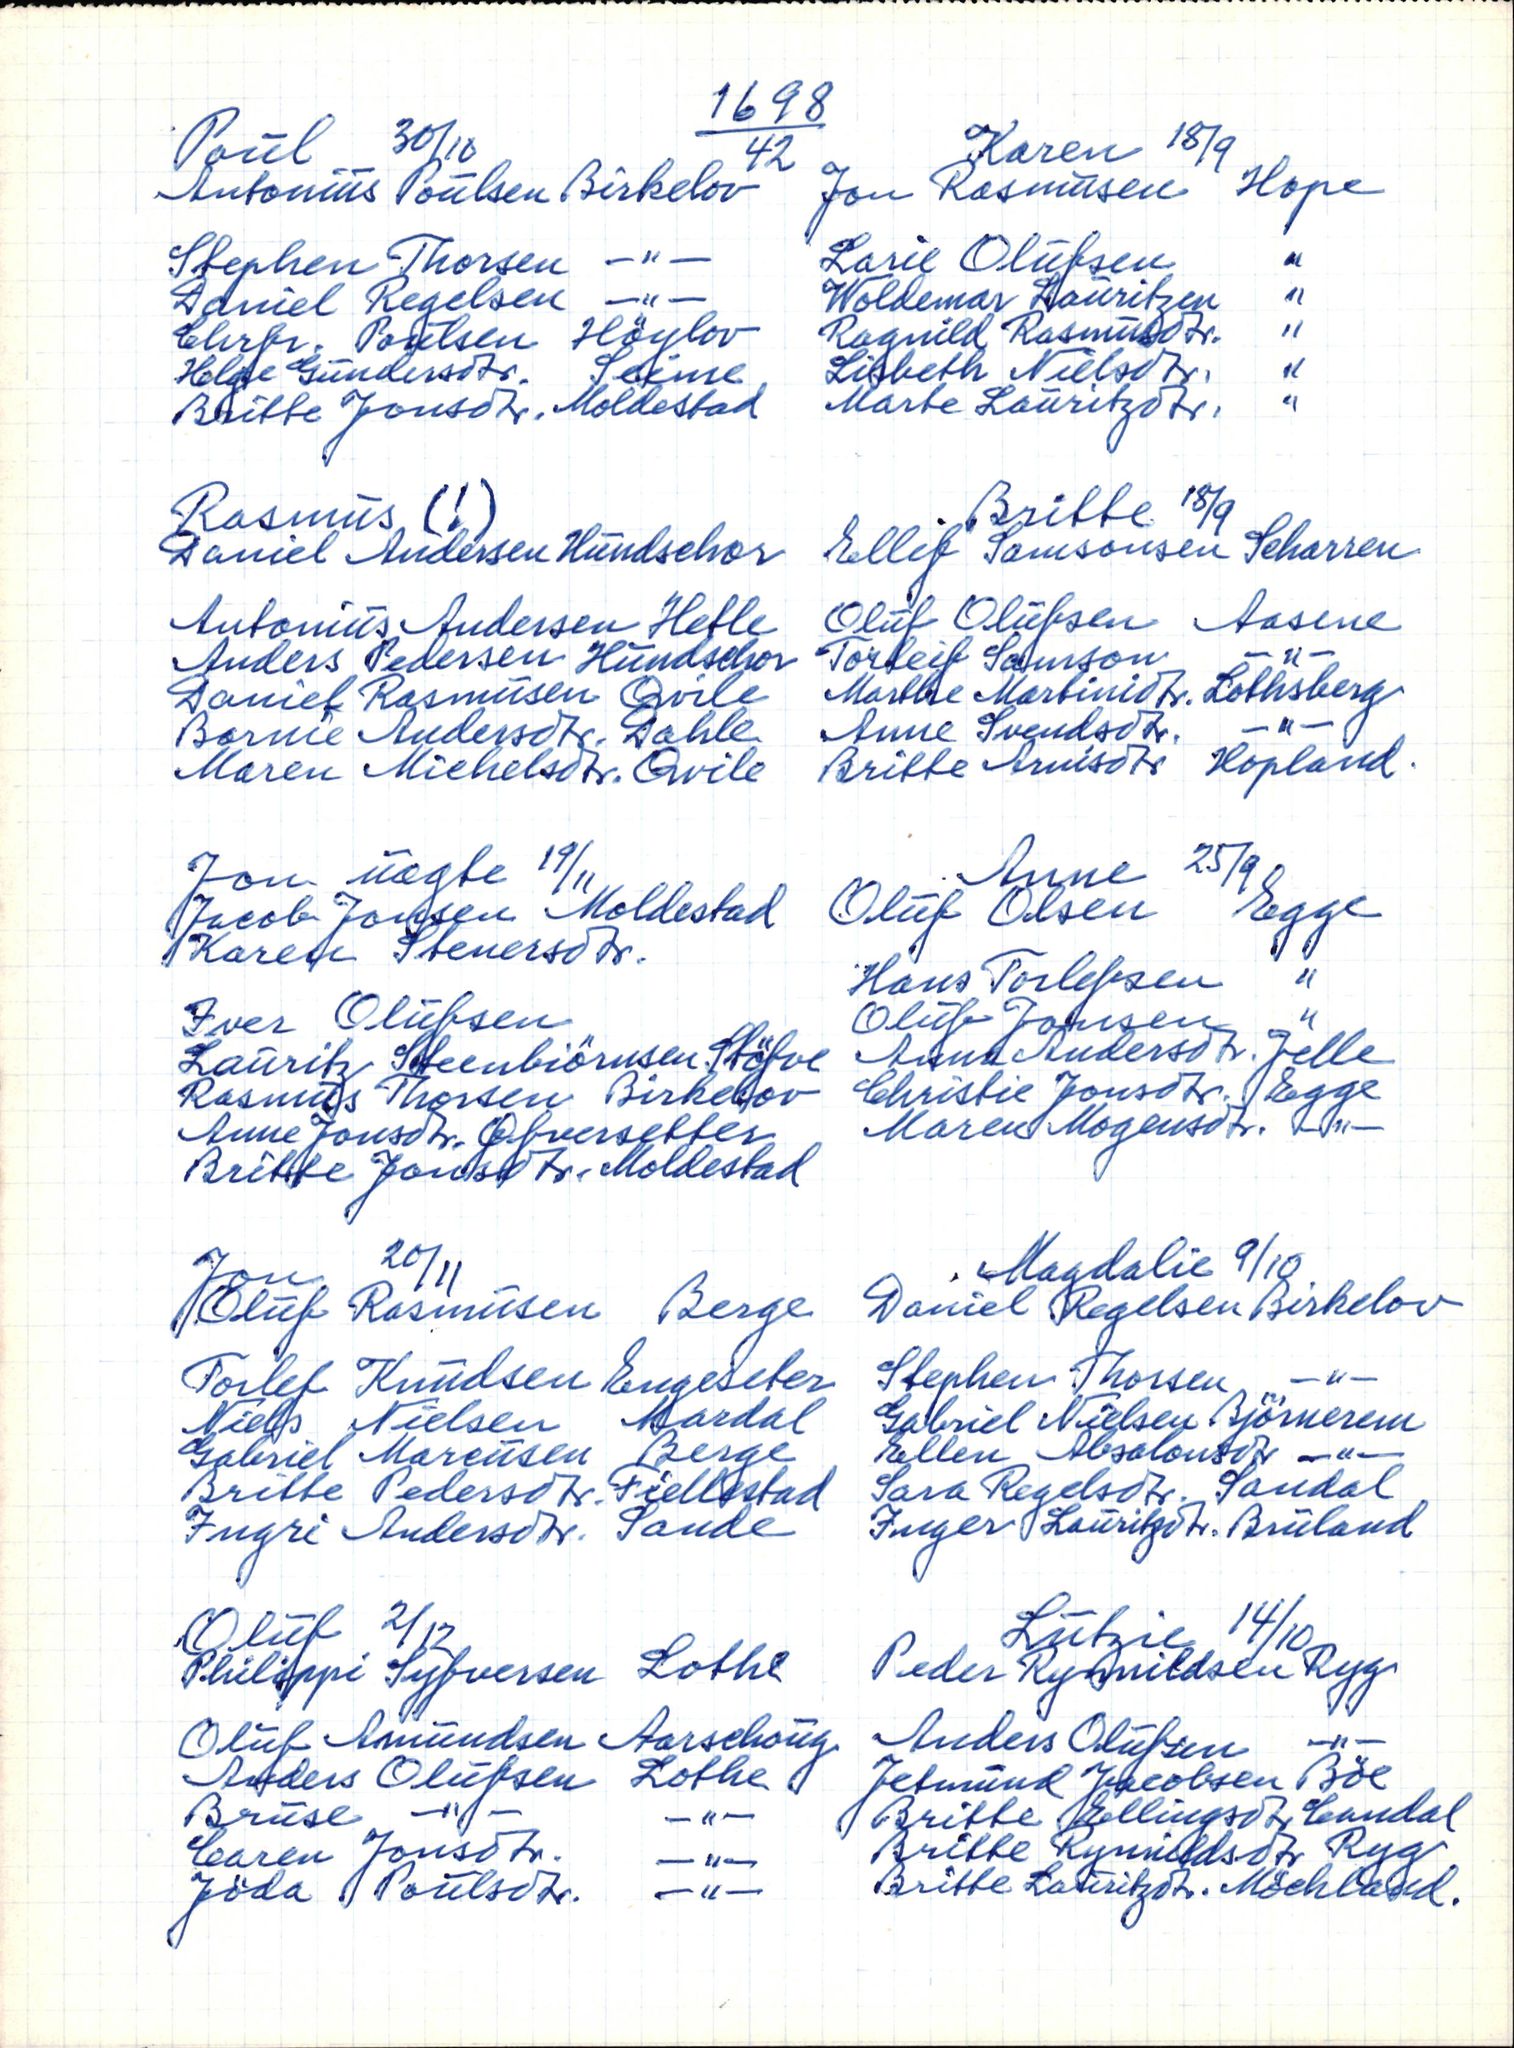 1698
42
Poul 30/10
Antonius Poulsen Birkelov
Stephen Thorsen -"-
Daniel Regelsen -"-
Chrfr. Poulsen Höylov
Helge Gundersdtr. Seime
Britte Jonsdtr. Moldestad
Rasmus (!)
Daniel Andersen Hundschor
Antonius Andersen Hetle
Anders Pedersen Hundschor
Daniel Rasmusen Qvile
Bornie Andersdtr. Dahle
Maren Michelsdtr. Qvile
Jon uægte 19/11
Jacob Jonsen Moldestad
Karen Stenersdtr.
Iver Olufsen
Lauritz Steenbiörnsen Stöfve
Rasmus Thorsen Birkelov
Anne Jonsdtr. Öfversetter
Britte Jonsdtr. Moldestad
Jon 20/11
Oluf Rasmusen Berge
Torlef Knudsen Engeseter
Niels Nielsen Mardal
Gabriel Marcusen Berge
Britte Pedersdtr. Fiellestad
Ingri Andersdtr. Sande
Oluf 2/12
Philippi Syfversen Lothe
Oluf Amundsen Aarschoug
Anders Olufsen Lothe
Bruse -"- -"-
Caren Jonsdtr. -"-
Jöda Poulsdtr. -"-
Karen 18/9
Jon Rasmusen Hope
Larie Olufsen "
Woldemar Lauritzen "
Ragnild Rasmusdtr. "
Lisbeth Nielsdtr. "
Marte Lauritzdtr. "
Britte 18/9
Ellif Samsonsen Scharren
Oluf Olufsen Aasene
Torleif Samson -"-
Marthe Martinidtr. Lothsberg
Anne Svendsdtr. -"-
Britte Arnisdtr Hopland.
Anne 25/9
Oluf Olsen Egge
Hans Torlefsen "
Oluf Jonsen "
Anna Andersdtr. Jelle
Christie Jonsdtr. Egge
Maren Mogensdtr. -"-
Magdalie 9/10
Daniel Regelsen Birkelov
Stephen Thorsen -"-
Gabriel Nielsen Björnerem
Ellen Absalonsdtr -"-
Sara Regelsdtr. Sandal
Inger Lauritzdtr. Bruland
Lutzie 14/10
Peder Rynnildsen Ryg
Anders Olufsen -"-
Jetmund Jacobsen Böe
Britte Ellingsdtr. Eundal
Britte Rynnildsdtr Ryg
Britte Lauritzdtr. Möchland.